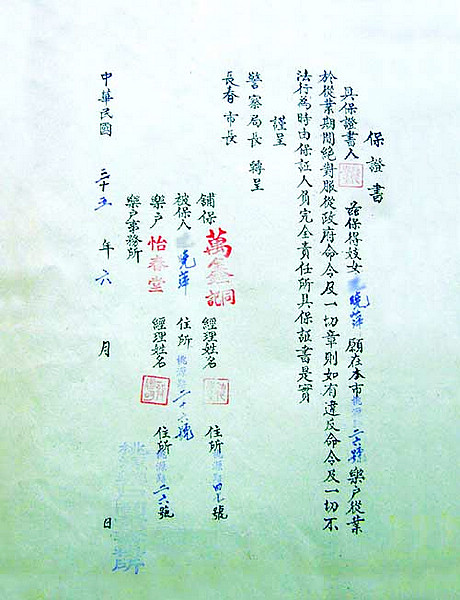 保證書
具保證書人 茲保得妓女 曉萍 願在本市桃源路二十六號樂户從業
於從業期間絶對服從政府命令及一切章則如有違反命令及一切不
法行為時由保証人負完全責任所具保証書是實
謹呈
警察局長 轉呈
長春市長
鋪保 萬鑫同記 經理姓名 住所桃源路四七號
被保人 曉萍 住所 桃源路二十六號
樂户 怡春堂 經理姓名 住所桃源路二六號
樂户事務所
中華民國 三十五 年 六 月 日